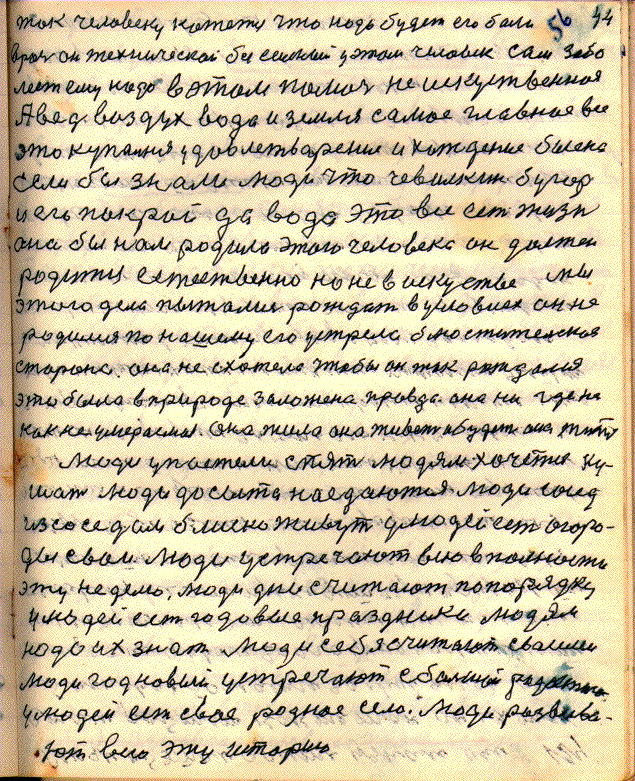 так человеку кажети что надо будет его боли 56 44
врач он технический бы сильный у этом человек сам забо
леет ему надо в этом помоч не искуственная
А вед. воздух вода и земля самое главное все
это купания удовлетварение и хождение была на
если бы знали люди что чевилкин бугор
и ега пакрой да вода это все ест жизн
она бы нам родила этого человека он должен
родитця естественно но не в искустве мы
этого дела пыталис рождат в условиях он не
родился по нашему его устрела блюстителская
старона. она не схотела чтобы он так раждался
это была в природе заложена правда она ни где на
как не умераема. Она жила она живет и будет она жит
Люди упостели спят людям хочется ку-
шат люди досыта наедаются люди сосед
из соседам близко живут у людей ест огоро-
ды сваи люди устречают всю в полности
эту неделю, люди дни считают попорядку
у людей ест годовые праздники людям
надо их знат люди себя считают сваими
люди год новый устречают с балшой радостю
у людей ест свае родное село. Люди развива-
ют всю эту историю